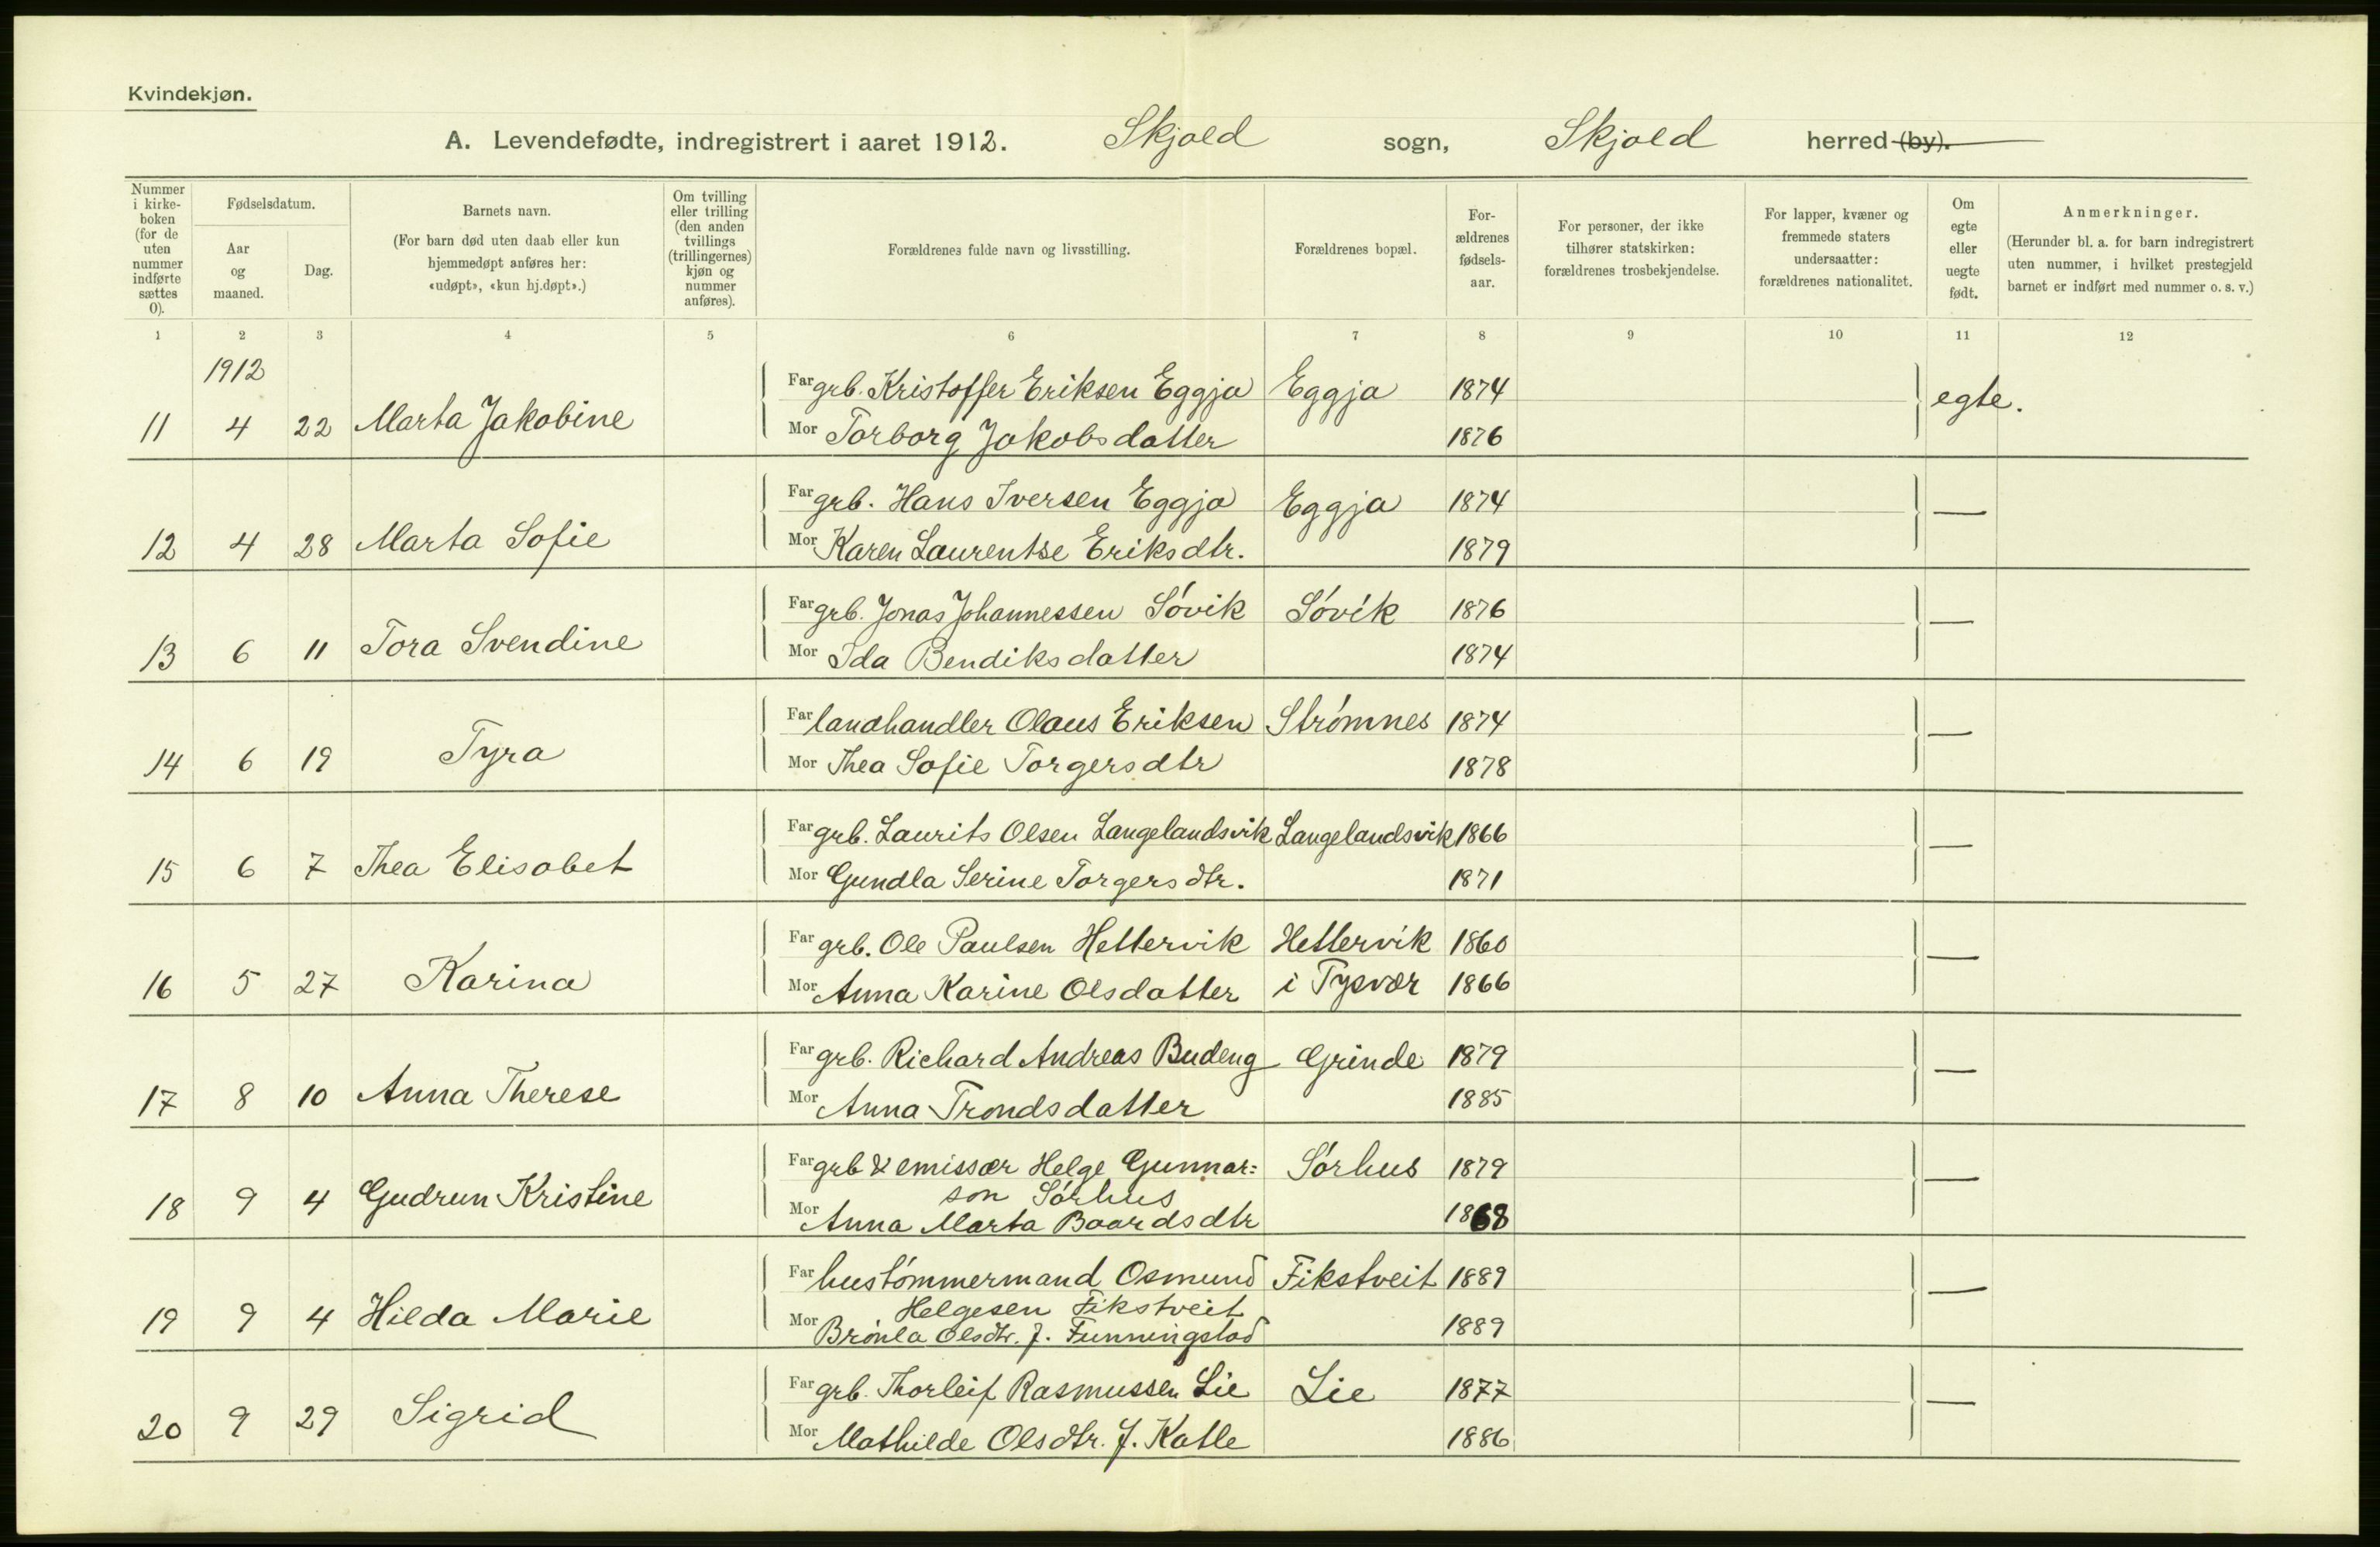 Kvindekjøn.
A. Levendefødte, indregistrert i aaret 1912. Skjold sogn, Skjold herred (by).
Nummer i kirkeboken (for de uten nummer indførte sættes 0).
Fødselsdatum.
Aar og maaned.
Dag.
Barnets navn.
(For barn død uten daab eller kun hjemmedøpt anføres her: «udøpt», «kun hj.døpt».)
Om tvilling eller trilling (den anden tvillings (trillingernes) kjøn og nummer anføres).
Forældrenes fulde navn og livsstilling.
Forældrenes bopæl.
Forældrenes fødselsaar.
For personer, der ikke tilhører statskirken: forældrenes trosbekjendelse.
For lapper, kvæner og fremmede staters undersaatter: forældrenes nationalitet.
Om egte eller uegte født.
Anmerkninger.
(Herunder bl. a. for barn indregistrert uten nummer, i hvilket prestegjeld barnet er indført med nummer o. s. v.)
1 2 3 4 5 6 7 8 9 10 11 12
1912
Far grb. Kristoffer Eriksen Eggja Eggja 1874 egte.
11 4 22 Marta Jakobine
Mor Torborg Jakobsdatter 1876
Far grb. Hans Iversen Eggja Eggja 1874 —
12 4 28 Marta Sofie
Mor Karen Laurentse Eriksdtr. 1879
Far grb. Jonas Johannessen Søvik Søvik 1876 —
13 6 11 Tora Svendine
Mor Ida Bendiksdatter 1874
Far landhandler Olaus Eriksen Strømnes 1874 —
14 6 19 Tyra
Mor Thea Sofie Torgersdtr 1878
Far grb. Laurits Olsen Langelandsvik Langelandsvik 1866 —
15 6 7 Thea Elisabet
Mor Gundla Serine Torgersdtr. 1871
Far grb. Ole Paulsen Hettervik Hettervik 1860 —
16 5 27 Karina
Mor Anna Karine Olsdatter i Tysvær 1866
Far grb. Richard Andreas Budeng Grinde 1879 —
17 8 10 Anna Therese
Mor Anna Trondsdatter 1885
Far grb & emissær Helge Gunnar= Sørhus 1879 —
son Sørhus
18 9 4 Gudrun Kristine
Mor Anna Marta Baardsdtr 1868
Far hustømmermand Osmund Fikstveit 1889 —
Helgesen Fikstveit
19 9 4 Hilda Marie
Mor Brønla Olsdtr. f. Funningslad 1889
Far grb. Thorleif Rasmussen Lie Lie 1877 —
20 9 29 Sigrid
Mor Mathilde Olsdtr. f. Katle 1886